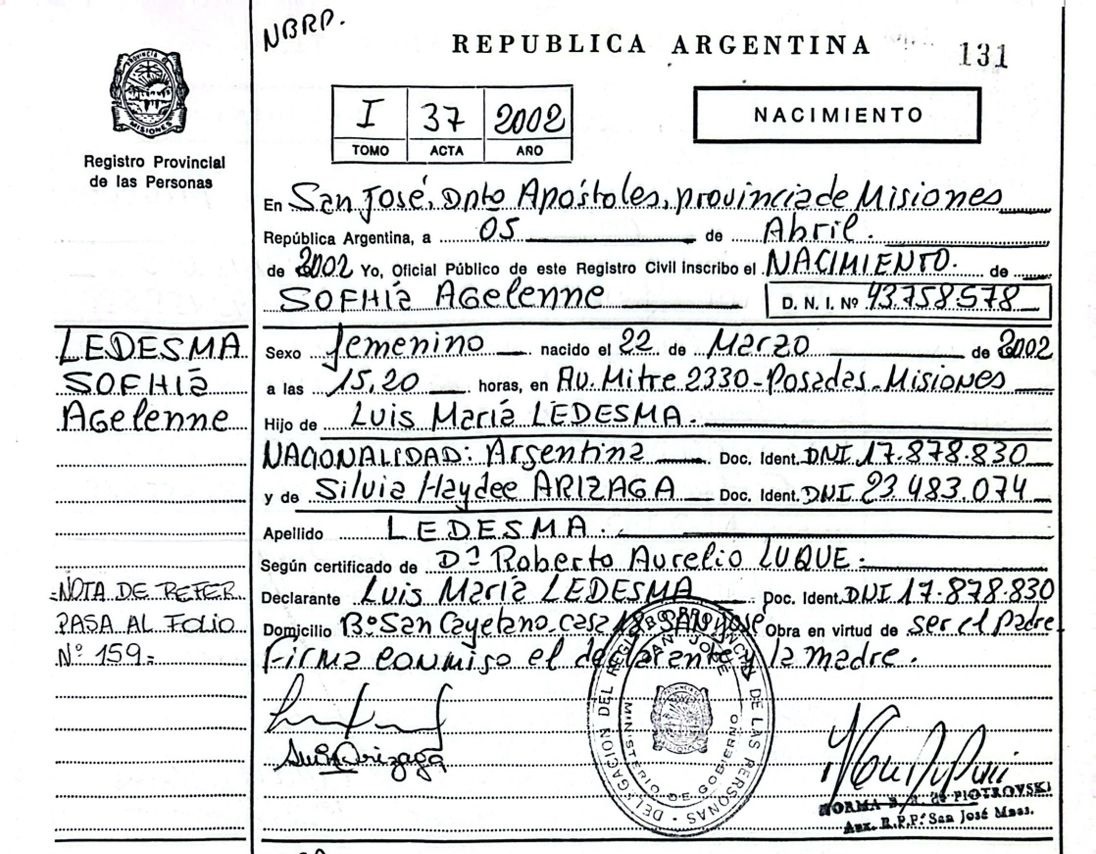 NBRP.
REPUBLICA ARGENTINA
131
PROVINCIA DE MISIONES
Registro Provincial
de las Personas
I 37 2002
TOMO ACTA AÑO
NACIMIENTO
En San José, Dpto Apóstoles, provincia de Misiones
República Argentina, a 05 de Abril.
de 2002 Yo, Oficial Público de este Registro Civil Inscribo el NACIMIENTO. de
SOFHía Agelenne D. N. I. Nº 43.758.578
LEDESMA
SOFHía
Agelenne
Sexo femenino nacido el 22 de Marzo de 2002
a las 15,20 horas, en Av. Mitre 2330-Posadas-Misiones
Hijo de Luis María LEDESMA.
NACIONALIDAD: Argentina Doc. Ident. DNI 17.878.830
y de Silvia Haydee ARIZAGA Doc. Ident. DNI 23.483.074
Apellido LEDESMA.
Según certificado de Dr Roberto Aurelio LUQUE.
Declarante Luis María LEDESMA Doc. Ident. DNI 17.878.830
Domicilio Bº San Cayetano, casa 18-SAN José Obra en virtud de ser el padre
Firma conmigo el declarante y la madre.
NOTA DE REFER
PASA AL FOLIO
Nº 159=
Arizaga
DELEGACION DEL REGISTRO PROVINCIAL DE LAS PERSONAS
SAN JOSE
MINISTERIO DE GOBIERNO
NORMA B. de PIOTROVSKI
Aux. R.P.P. San José Mnes.